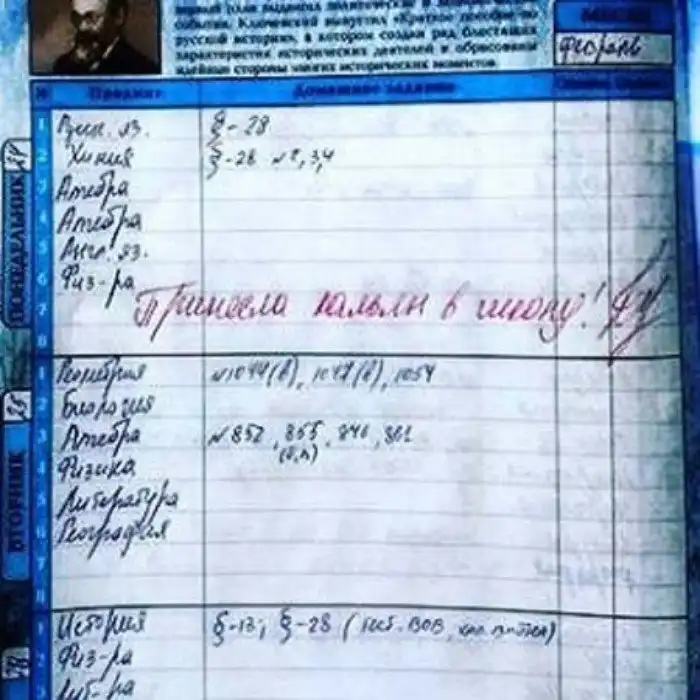 первый план выдвигал политические и
события. Ключевский выпустил «Краткое пособие по
русской истории», в котором создал ряд блестящих
характеристик исторических деятелей и обрисовал
идейные стороны многих исторических моментов
февраль
№ Предмет Домашнее задание
ПОНЕДЕЛЬНИК 24
1 Рус. яз. §-28
2 Химия §-28 №2,3,4
3 Алгебра
4 Алгебра
5 Англ. яз.
6 Физ-ра
7 Принесла кальян в школу!
8
ВТОРНИК 25
1 Геометрия №1044(в), 1047(в), 1054
2 Биология
3 Алгебра №852, 855, 846, 861
(б,г)
4 Физика
5 Литература
6 География
7
8
1 История §-13; §-28 (ист. ВОВ,
2 Физ-ра
3 Лит-ра